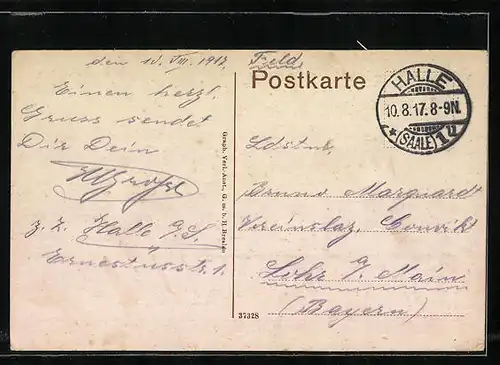 den 10. VIII. 1917.
Feld
Postkarte
HALLE
10.8.17. 8-9N.
* (SAALE) 1 *
Einen herzl.
Gruss sendet
Dir Dein
z. Z. Halle a/S.
Ernestusstr. 1.
Ldstm.
Bruno Marquardt
Vereinslaz. Convikt
Lohr a/Main
(Bayern)
Graph. Verl.-Anst., G. m. b. H. Breslau
37328